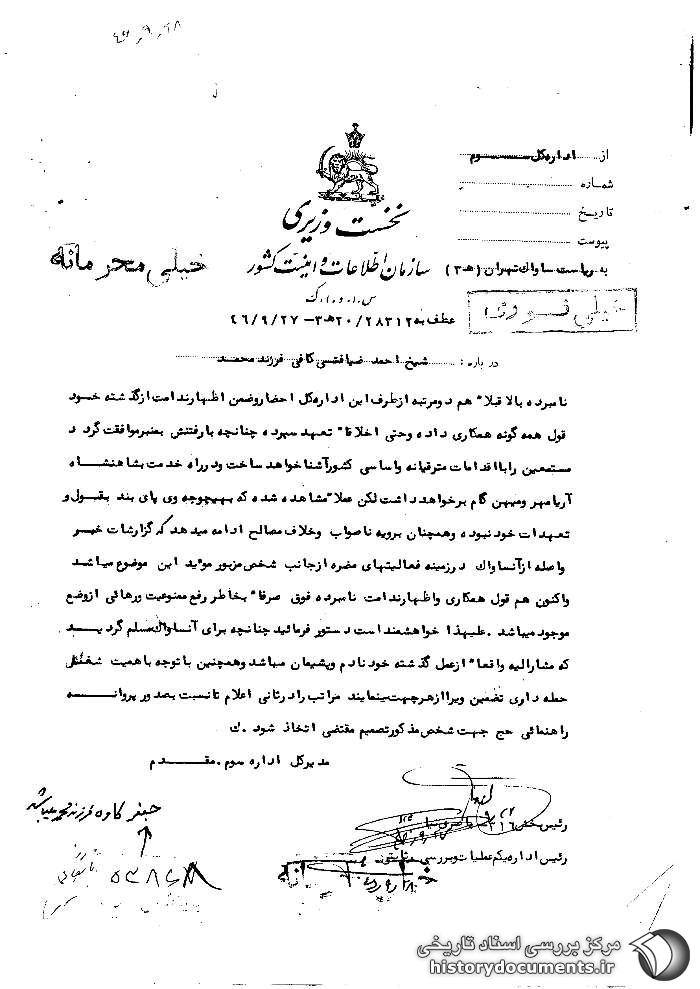 ۴۶٫۹٫۲۸
از اداره کل ســـوم
شماره
تاریخ
پیوست
نخست وزیری
سازمان اطلاعات و امنیت کشور
س.ا.و.ا.ک
خیلی محرمانه
به ریاست ساواک تهران (۳هـ)
خیلی فوری
عطف به ۲۸۳۱۲/۲۰هـ۳-۴۶/۹/۲۷
درباره: شیخ احمد ضیافتی کافی فرزند محمد
نامبرده بالا قبلا" هم دومرتبه ازطرف این اداره کل احضار وضمن اظهارندامت ازگذشته خود
قول همه گونه همکاری داده وحتی اخلاقا" تعهد سپرده چنانچه بارفتنش بمنبرموافقت گردد
مستمعین رابااقدامات مترقیانه واساسی کشورآشناخواهد ساخت ودرراه خدمت بشاهنشاه
آریامهر ومیهن گام برخواهدداشت لکن عملا"مشاهده شده که بهیچوجه وی پای بند بقول و
تعهدات خودنبوده وهمچنان برویه ناصواب وخلاف مصالح ادامه میدهد که گزارشات خبر
واصله ازآنساواک درزمینه فعالیتهای مضره ازجانب شخص مزبور موید این موضوع میباشد
واکنون هم قول همکاری واظهارندامت نامبرده فوق صرفا" بخاطر رفع ممنوعیت ورهائی ازوضع
موجود میباشد .علیهذا خواهشمنداست دستور فرمائید چنانچه برای آنساواک مسلم گردیــد
که مشارالیه واقعا" ازعمل گذشته خود نادم وپشیمان میباشد وهمچنین با توجه باهمیت شغلی
حمله داری تضمین ویراازهرجهت مینمایند مراتب رادرثانی اعلام تانسبت بصدور پروانـــه
راهنمائی حج جهت شخص مذکورتصمیم مقتضی اتخاذ شود .ک
مدیرکل اداره سوم . مقــدم
رئیس بخش ۳۱۶
رئیس اداره یکم عملیات وبررسی
جعفر کاوه فرزند محمد میباشد
مرکز بررسی اسناد تاریخی
historydocuments.ir